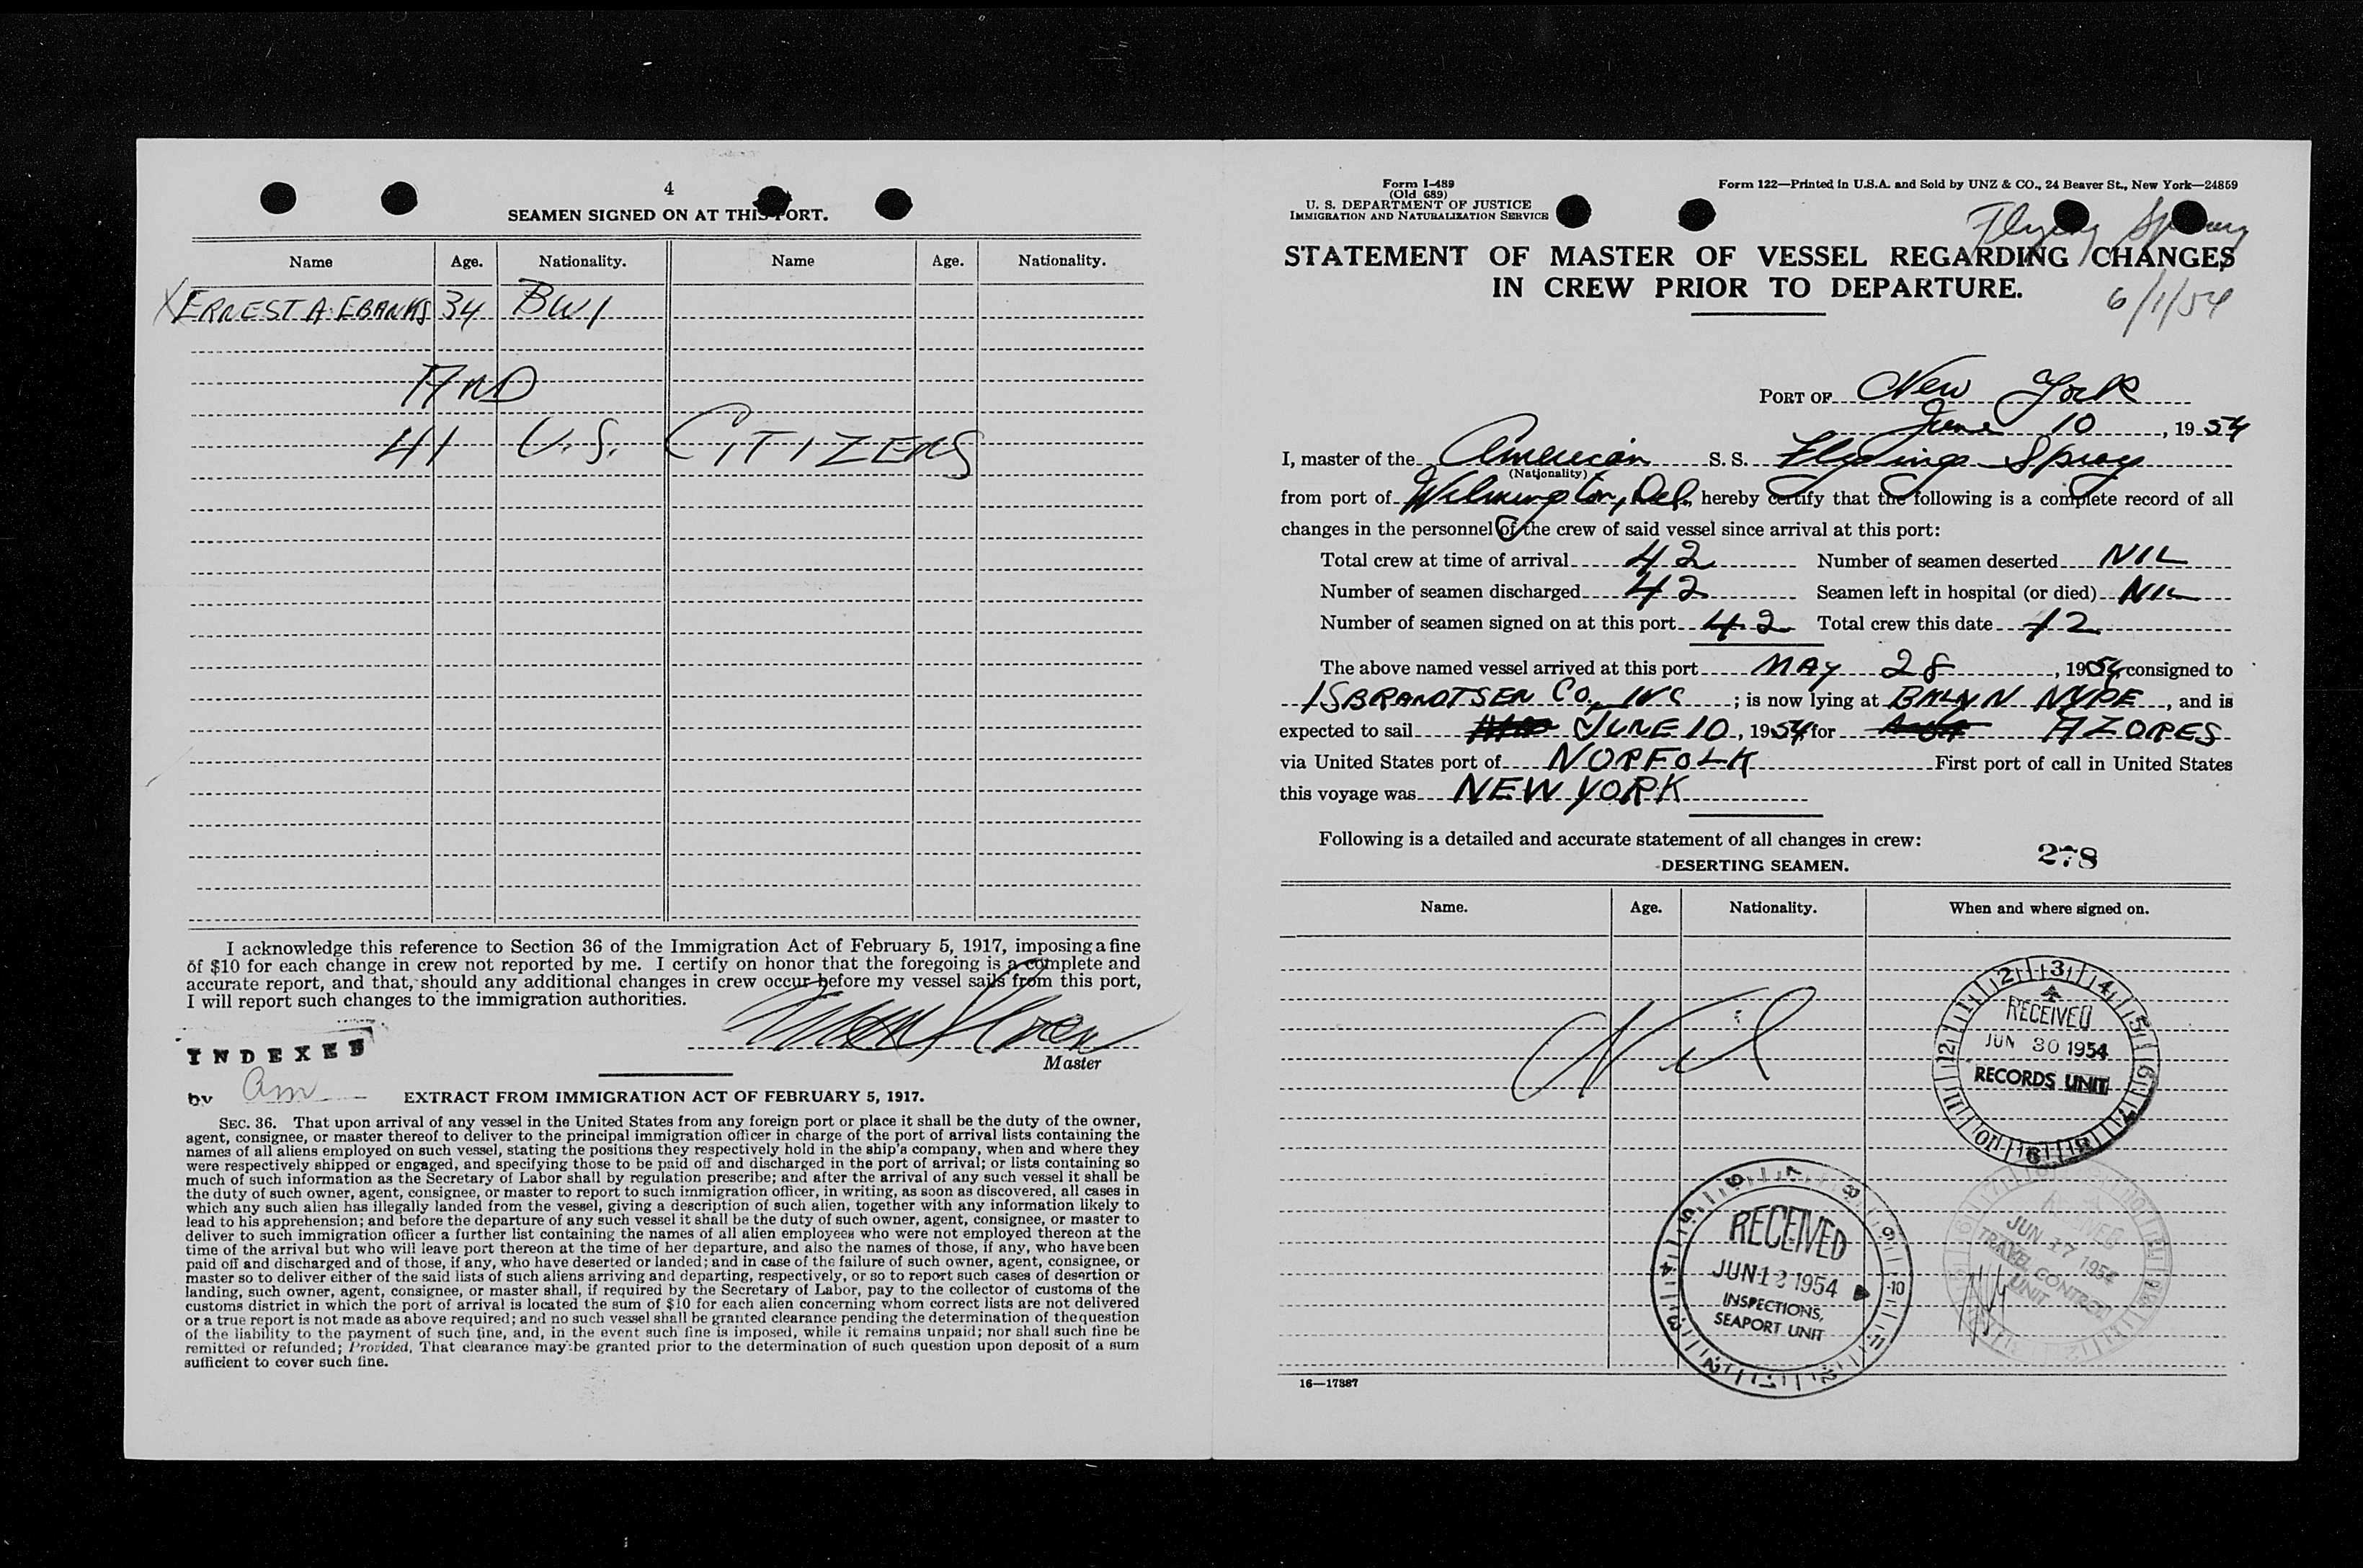 4
SEAMEN SIGNED ON AT THIS PORT.
Name Age. Nationality. Name Age. Nationality.
X ERNEST A. EBANKS 34 BWI
AND
41 U.S. CITIZENS
I acknowledge this reference to Section 36 of the Immigration Act of February 5, 1917, imposing a fine
of $10 for each change in crew not reported by me. I certify on honor that the foregoing is a complete and
accurate report, and that, should any additional changes in crew occur before my vessel sails from this port,
I will report such changes to the immigration authorities.
INDEXED
Master
by am
EXTRACT FROM IMMIGRATION ACT OF FEBRUARY 5, 1917.
SEC. 36. That upon arrival of any vessel in the United States from any foreign port or place it shall be the duty of the owner,
agent, consignee, or master thereof to deliver to the principal immigration officer in charge of the port of arrival lists containing the
names of all aliens employed on such vessel, stating the positions they respectively hold in the ship's company, when and where they
were respectively shipped or engaged, and specifying those to be paid off and discharged in the port of arrival; or lists containing so
much of such information as the Secretary of Labor shall by regulation prescribe; and after the arrival of any such vessel it shall be
the duty of such owner, agent, consignee, or master to report to such immigration officer, in writing, as soon as discovered, all cases in
which any such alien has illegally landed from the vessel, giving a description of such alien, together with any information likely to
lead to his apprehension; and before the departure of any such vessel it shall be the duty of such owner, agent, consignee, or master to
deliver to such immigration officer a further list containing the names of all alien employees who were not employed thereon at the
time of the arrival but who will leave port thereon at the time of her departure, and also the names of those, if any, who have been
paid off and discharged and of those, if any, who have deserted or landed; and in case of the failure of such owner, agent, consignee, or
master so to deliver either of the said lists of such aliens arriving and departing, respectively, or so to report such cases of desertion or
landing, such owner, agent, consignee, or master shall, if required by the Secretary of Labor, pay to the collector of customs of the
customs district in which the port of arrival is located the sum of $10 for each alien concerning whom correct lists are not delivered
or a true report is not made as above required; and no such vessel shall be granted clearance pending the determination of the question
of the liability to the payment of such fine, and, in the event such fine is imposed, while it remains unpaid; nor shall such fine be
remitted or refunded; Provided, That clearance may be granted prior to the determination of such question upon deposit of a sum
sufficient to cover such fine.
Form I-489
(Old 689)
U. S. DEPARTMENT OF JUSTICE
IMMIGRATION AND NATURALIZATION SERVICE
Form 122—Printed in U.S.A. and Sold by UNZ & CO., 24 Beaver St., New York—24859
Flying Spray
STATEMENT OF MASTER OF VESSEL REGARDING CHANGES
IN CREW PRIOR TO DEPARTURE.
6/1/54
PORT OF New York
June 10, 1954
I, master of the American S. S. Flying Spray
(Nationality)
from port of Wilmington, Del, hereby certify that the following is a complete record of all
changes in the personnel of the crew of said vessel since arrival at this port:
Total crew at time of arrival 42 Number of seamen deserted NIL
Number of seamen discharged 42 Seamen left in hospital (or died) NIL
Number of seamen signed on at this port 42 Total crew this date 42
The above named vessel arrived at this port MAY 28, 1954 consigned to
ISBRANDTSEN CO., INC; is now lying at BKLYN NYPE, and is
expected to sail JUNE 10, 1954 for AZORES
via United States port of NORFOLK First port of call in United States
this voyage was NEW YORK
Following is a detailed and accurate statement of all changes in crew:
278
DESERTING SEAMEN.
Name. Age. Nationality. When and where signed on.
Nil
RECEIVED
JUN 30 1954
RECORDS UNIT
RECEIVED
JUN 12 1954
INSPECTIONS,
SEAPORT UNIT
RECEIVED
JUN 17 1954
TRAVEL CONTROL
UNIT
16—17387